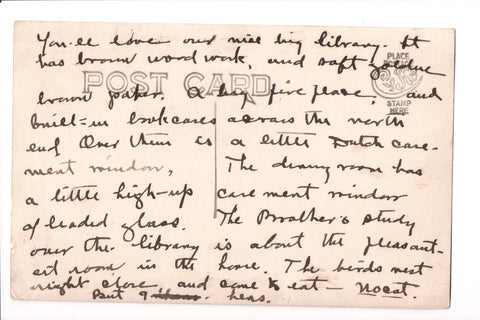 You'll love our nice big library. It
has brown wood work, and soft golden
POST CARD
PLACE
POSTAGE
STAMP
HERE
brown paper. A big fire place, and
built-in bookcases across the north
end Over them is a little Dutch case-
ment window, The dining room has
a little high-up casement window
of leaded glass. The Brother's study
over the library is about the pleasant-
est room in the house. The birds nest
right close, and come to eat - No cat.
here.